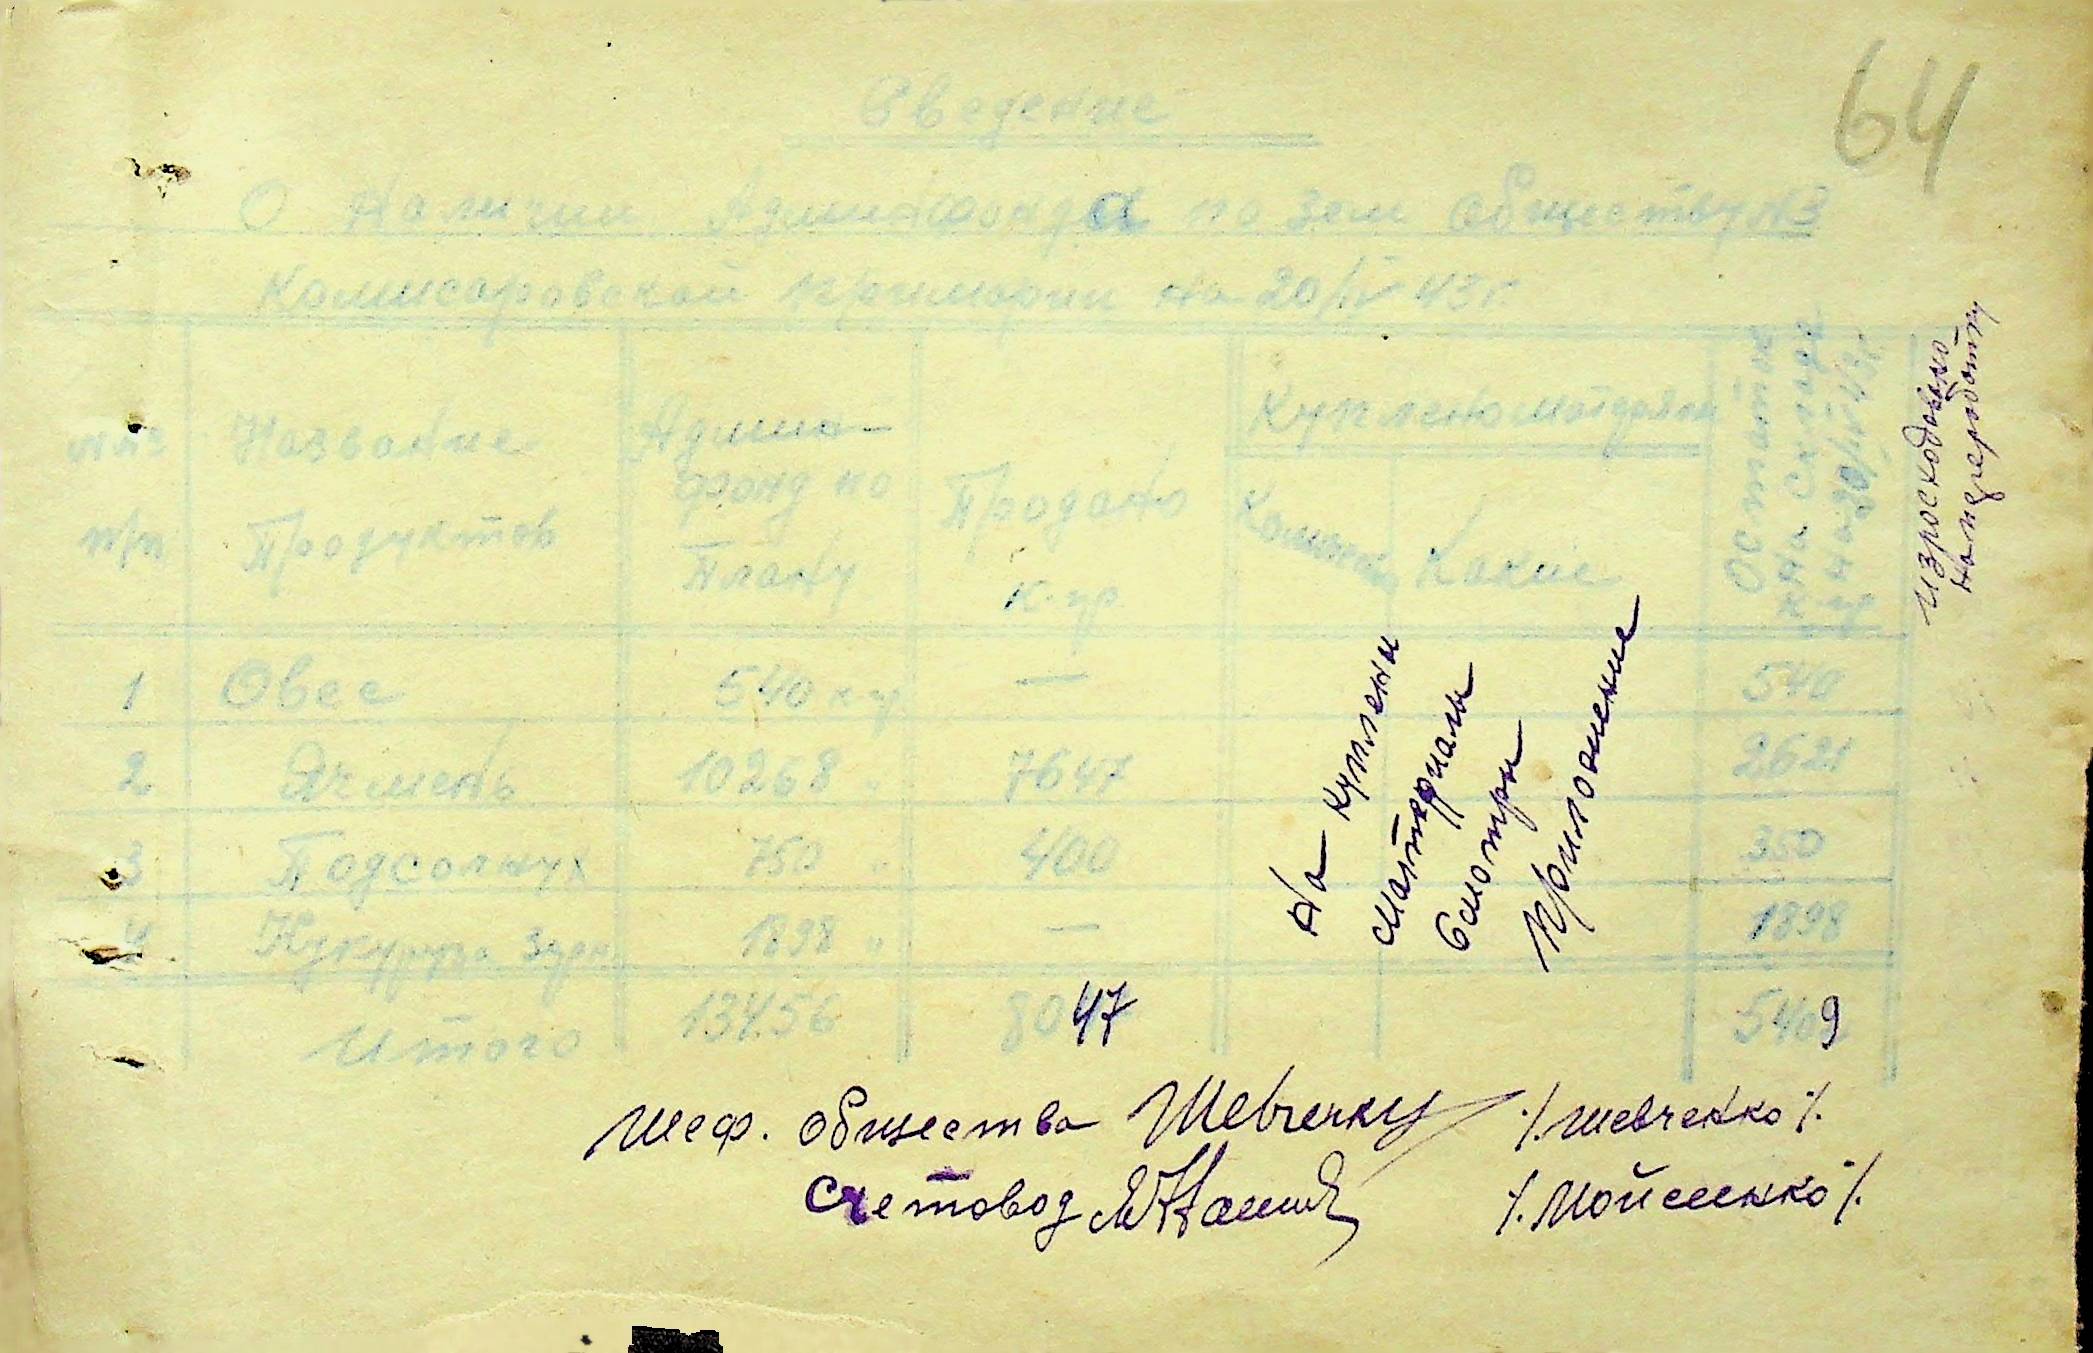 64
Сведение
О Наличии Админфонда по Зем обществу №3
Комисаровской примарии на 20/IV 43 г.
№№ п/п
Название Продуктов
Админ-фонд по Плану
Продано К-гр
Куплено матерялы
Какие
Остаток на Складе на 20/IV 43 г. к-гр
Израсходовано на переработку
1 Овес 540 к-гр — 540
2 Ячмень 10268 " 7647 2621
3 Подсолнух 750 " 400 350
4 Кукуруза Зерн 1898 " — 1898
Итого 13456 8047 5409
На куплени
материалы
Смотри
Приложение
Шеф. общества Шевченку /.Шевченко/.
Счетовод /.Мойсеенко/.